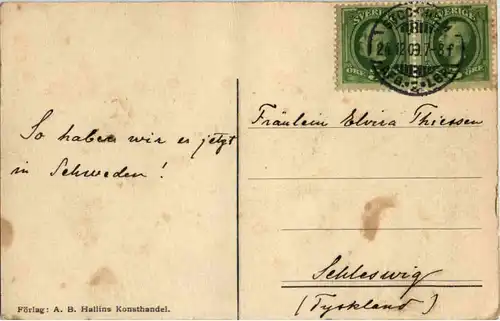 SVERIGE SVERIGE
26.12.09.7-8 f
ÖRE ÖRE
So haben wir es jetzt
in Schweden!
Fräulein Elvira Thiessen
Schleswig
(Tyskland)
Förlag: A. B. Hallins Konsthandel.